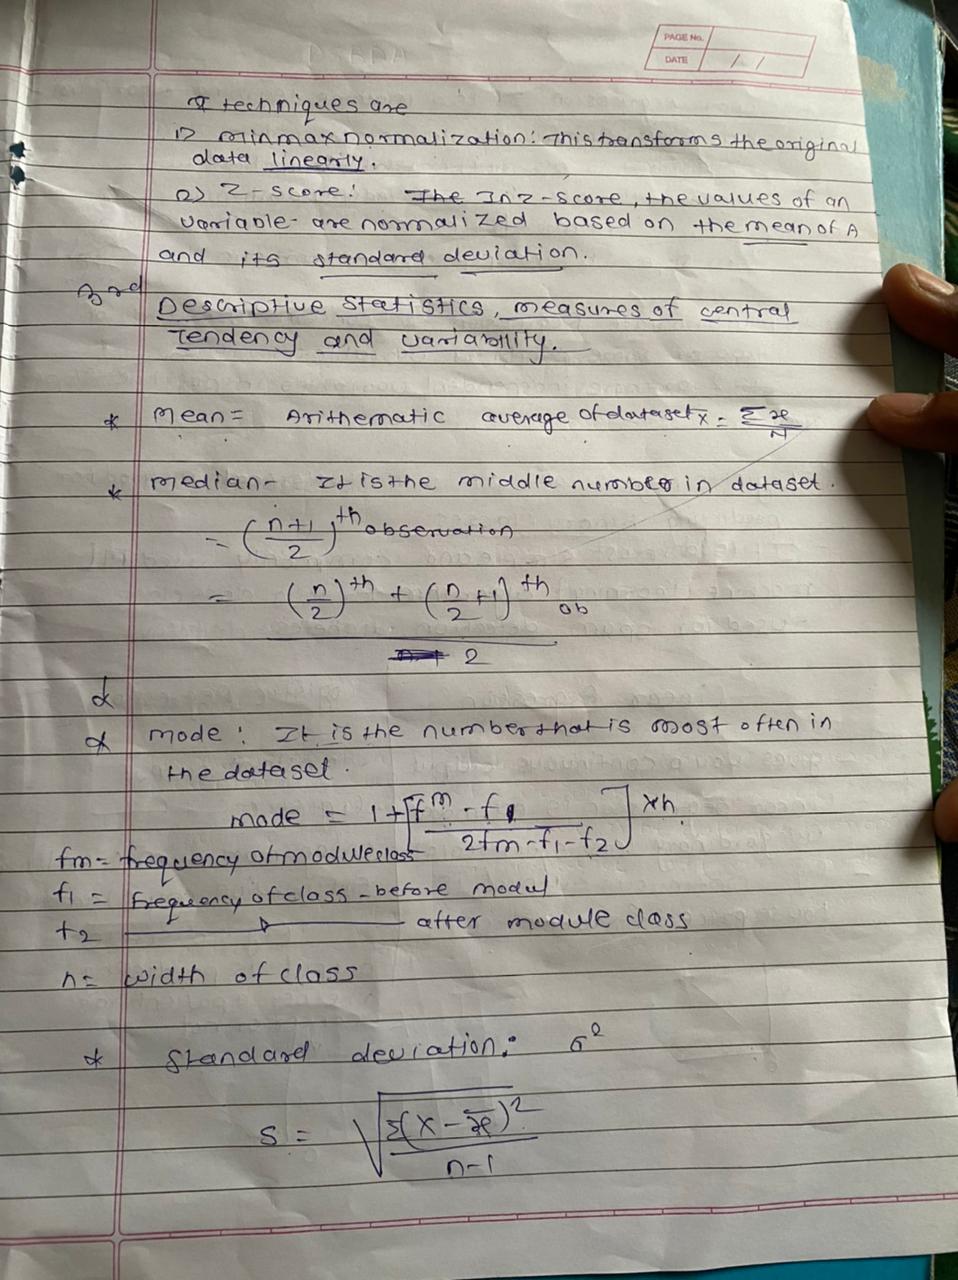 PAGE No.
DATE / /
techniques are
1) minmax normalization: This transforms the original
data linearly.
2) Z-score: The In z-score, the values of an
variable are normalized based on the mean of A
and its standard deviation.
3rd
Descriptive Statistics, measures of central
Tendency and variability.
* Mean = Arithematic average of dataset x̄ = Σx/N
* median - It is the middle number in dataset.
= (n+1/2)th observation
= (n/2)th + (n/2 +1)th ob
2
* mode: It is the number that is most often in
the dataset.
mode = l + [fm - f1 / 2fm - f1 - f2] xh
fm = frequency of module class
f1 = frequency of class - before modul
f2 ——▷—— after module class
h = width of class
* Standard deviation: σ²
S = √Σ(x - x̄)²/n-1